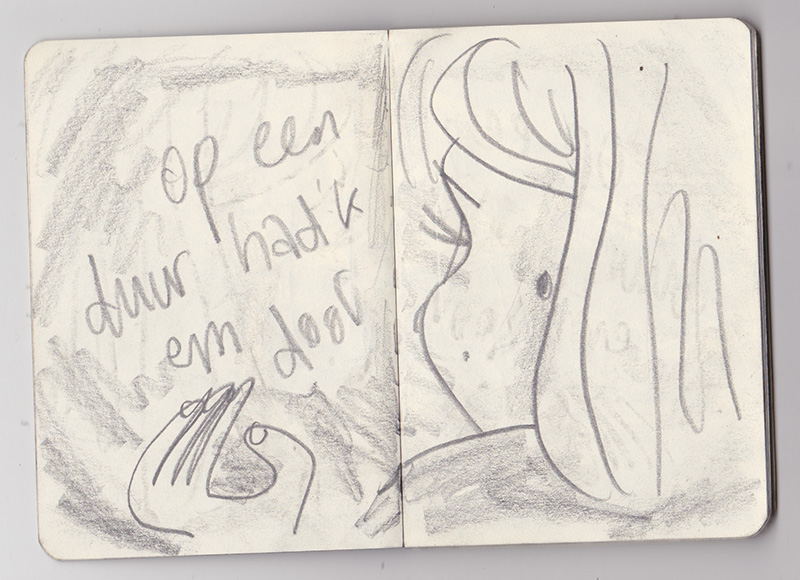 op een
duur had'k
em door